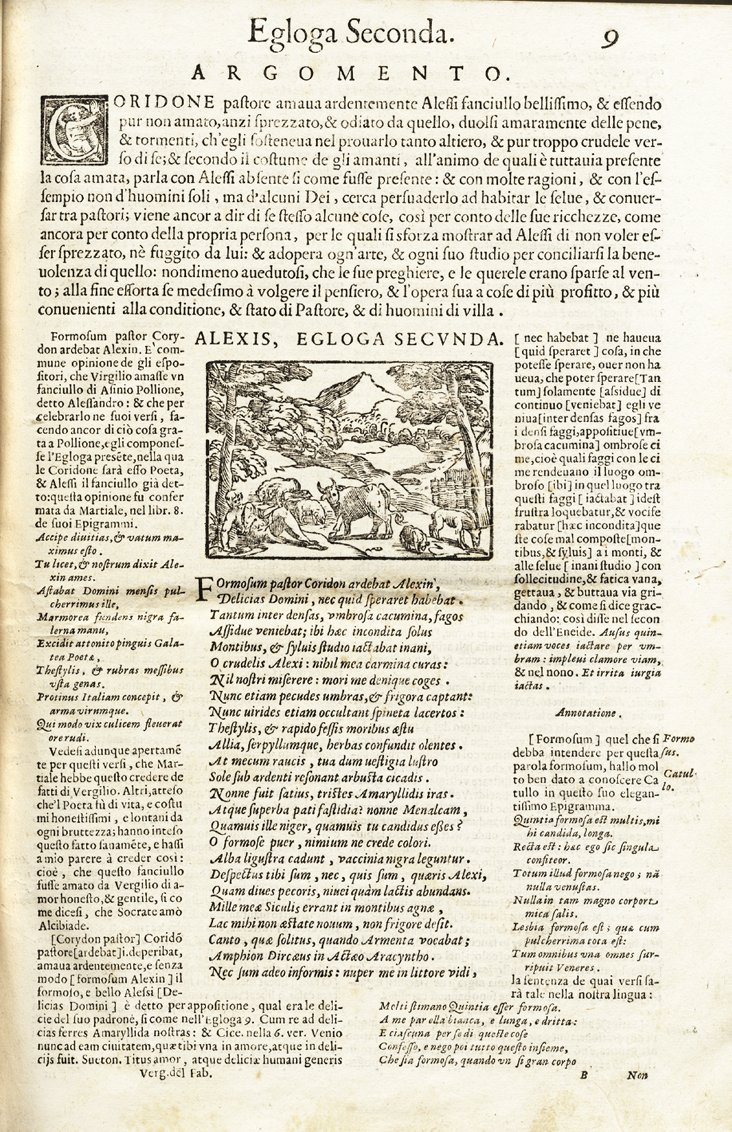 Egloga Seconda. 9
ARGOMENTO.
CORIDONE pastore amaua ardentemente Alessi fanciullo bellissimo, & essendo
pur non amato, anzi sprezzato, & odiato da quello, duolsi amaramente delle pene,
& tormenti, ch'egli sosteneua nel prouarlo tanto altiero, & pur troppo crudele ver-
so di se; & secondo il costume de gli amanti, all'animo de quali è tuttauia presente
la cosa amata, parla con Alessi absente si come fusse presente: & con molte ragioni, & con l'es-
sempio non d'huomini soli, ma d'alcuni Dei, cerca persuaderlo ad habitar le selue, & conuer-
sar tra pastori; viene ancor a dir di se stesso alcune cose, così per conto delle sue ricchezze, come
ancora per conto della propria persona, per le quali si sforza mostrar ad Alessi di non voler es-
ser sprezzato, nè fuggito da lui: & adopera ogn'arte, & ogni suo studio per conciliarsi la bene-
uolenza di quello: nondimeno auedutosi, che le sue preghiere, e le querele erano sparse al ven-
to; alla fine essorta se medesimo à volgere il pensiero, & l'opera sua a cose di più profitto, & più
conuenienti alla conditione, & stato di Pastore, & di huomini di villa.
Formosum pastor Cory-
don ardebat Alexin. E' com-
mune opinione de gli espo-
sitori, che Virgilio amasse vn
fanciullo di Asinio Pollione,
detto Alessandro: & che per
celebrarlo ne suoi versi, fa-
cendo ancor di ciò cosa gra-
ta a Pollione, egli compones-
se l'Egloga presēte, nella qua
le Coridone sarà esso Poeta,
& Alessi il fanciullo già det-
to: questa opinione fu confer
mata da Martiale, nel libr. 8.
de suoi Epigrammi.
Accipe diuitias, & vatum ma-
ximus esto.
Tu licet, & nostrum dixit Ale-
xin ames.
Astabat Domini mensis pul-
cherrimus ille,
Marmorea fundens nigra fa-
lerna manu,
Excidit attonito pinguis Gala-
tea Poetæ,
Thestylis, & rubras messibus
vsta genas.
Protinus Italiam concepit, &
arma virumque.
Qui modo vix culicem fleuerat
ore rudi.
Vedesi adunque apertamē
te per questi versi, che Mar-
tiale hebbe questo credere de
fatti di Vergilio. Altri, atteso
che'l Poeta fù di vita, e costu
mi honestissimi, e lontani da
ogni bruttezza; hanno inteso
questo fatto sanamēte, e hassi
a mio parere à creder così:
cioè, che questo fanciullo
fusse amato da Vergilio di a-
mor honesto, & gentile, si co
me dicesi, che Socrate amò
Alcibiade.
[Corydon pastor] Coridō
pastore [ardebat] i. deperibat,
amaua ardentemente, e senza
modo [formosum Alexin] il
formoso, e bello Alessi [De-
licias Domini] è detto per appositione, qual era le deli-
cie del suo padrone, si come nell'Egloga 9. Cum re ad deli-
cias ferres Amaryllida nostras: & Cice. nella 6. ver. Venio
nunc ad eam ciuitatem, quæ tibi vna in amore, atque in deli-
cijs fuit. Sueton. Titus amor, atque deliciæ humani generis
Verg. del Fab.
ALEXIS, EGLOGA SECVNDA.
Formosum pastor Coridon ardebat Alexin,
Delicias Domini, nec quid speraret habebat.
Tantum inter densas, vmbrosa cacumina, fagos
Assidue veniebat; ibi hæc incondita solus
Montibus, & syluis studio iactabat inani,
O crudelis Alexi: nihil mea carmina curas:
Nil nostri miserere: mori me denique coges.
Nunc etiam pecudes umbras, & frigora captant:
Nunc uirides etiam occultant spineta lacertos:
Thestylis, & rapido fessis moribus æstu
Allia, serpyllumque, herbas confundit olentes.
At mecum raucis, tua dum uestigia lustro
Sole sub ardenti resonant arbusta cicadis.
Nonne fuit satius, tristes Amaryllidis iras.
Atque superba pati fastidia? nonne Menalcam,
Quamuis ille niger, quamuis tu candidus esses?
O formose puer, nimium ne crede colori.
Alba ligustra cadunt, vaccinia nigra leguntur.
Despectus tibi sum, nec, quis sum, quæris Alexi,
Quam diues pecoris, niuei quàm lactis abundans.
Mille meæ Siculis errant in montibus agnæ,
Lac mihi non æstate nouum, non frigore desit.
Canto, quæ solitus, quando Armenta vocabat;
Amphion Dircæus in Actæo Aracyntho.
Nec sum adeo informis: nuper me in littore vidi,
[nec habebat] ne haueua
[quid speraret] cosa, in che
potesse sperare, ouer non ha
ueua, che poter sperare [Tan
tum] solamente [assidue] di
continuo [veniebat] egli ve
niua [inter densas fagos] fra
i densi faggi, appositiue [vm-
brosa cacumina] ombrose ci
me, cioè quali faggi con le ci
me rendeuano il luogo om-
broso [ibi] in quel luogo tra
questi faggi [iactabat] idest
frustra loquebatur, & vocife
rabatur [hæc incondita] que
ste cose mal composte [mon-
tibus, & syluis] a i monti, &
alle selue [inani studio] con
sollecitudine, & fatica vana,
gettaua, & buttaua via gri-
dando, & come si dice grac-
chiando: così disse nel secon
do dell'Eneide. Ausus quin-
etiam voces iactare per vm-
bram: impleui clamore viam,
& nel nono. Et irrita iurgia
iactas.
Annotatione.
[Formosum] quel che si
debba intendere per questa
parola formosum, hallo mol
to ben dato a conoscere Ca
tullo in questo suo elegan-
tissimo Epigramma.
Formo
sus.
Catul-
lo.
Quintia formosa est multis, mi
hi candida, longa.
Recta est: hæc ego sic singula
confiteor.
Totum illud formosa nego; nā
nulla venustas.
Nulla in tam magno corpore
mica salis.
Lesbia formosa est; quæ cum
pulcherrima tota est:
Tum omnibus vna omnes sur-
ripuit Veneres.
la sentenza de quai versi sa-
rà tale nella nostra lingua:
Molti stimano Quintia esser formosa.
A me par ella bianca, e lunga, e dritta:
E ciascuna per se di queste cose
Confesso, e nego poi tutto questo insieme,
Che sia formosa, quando vn si gran corpo
B Non